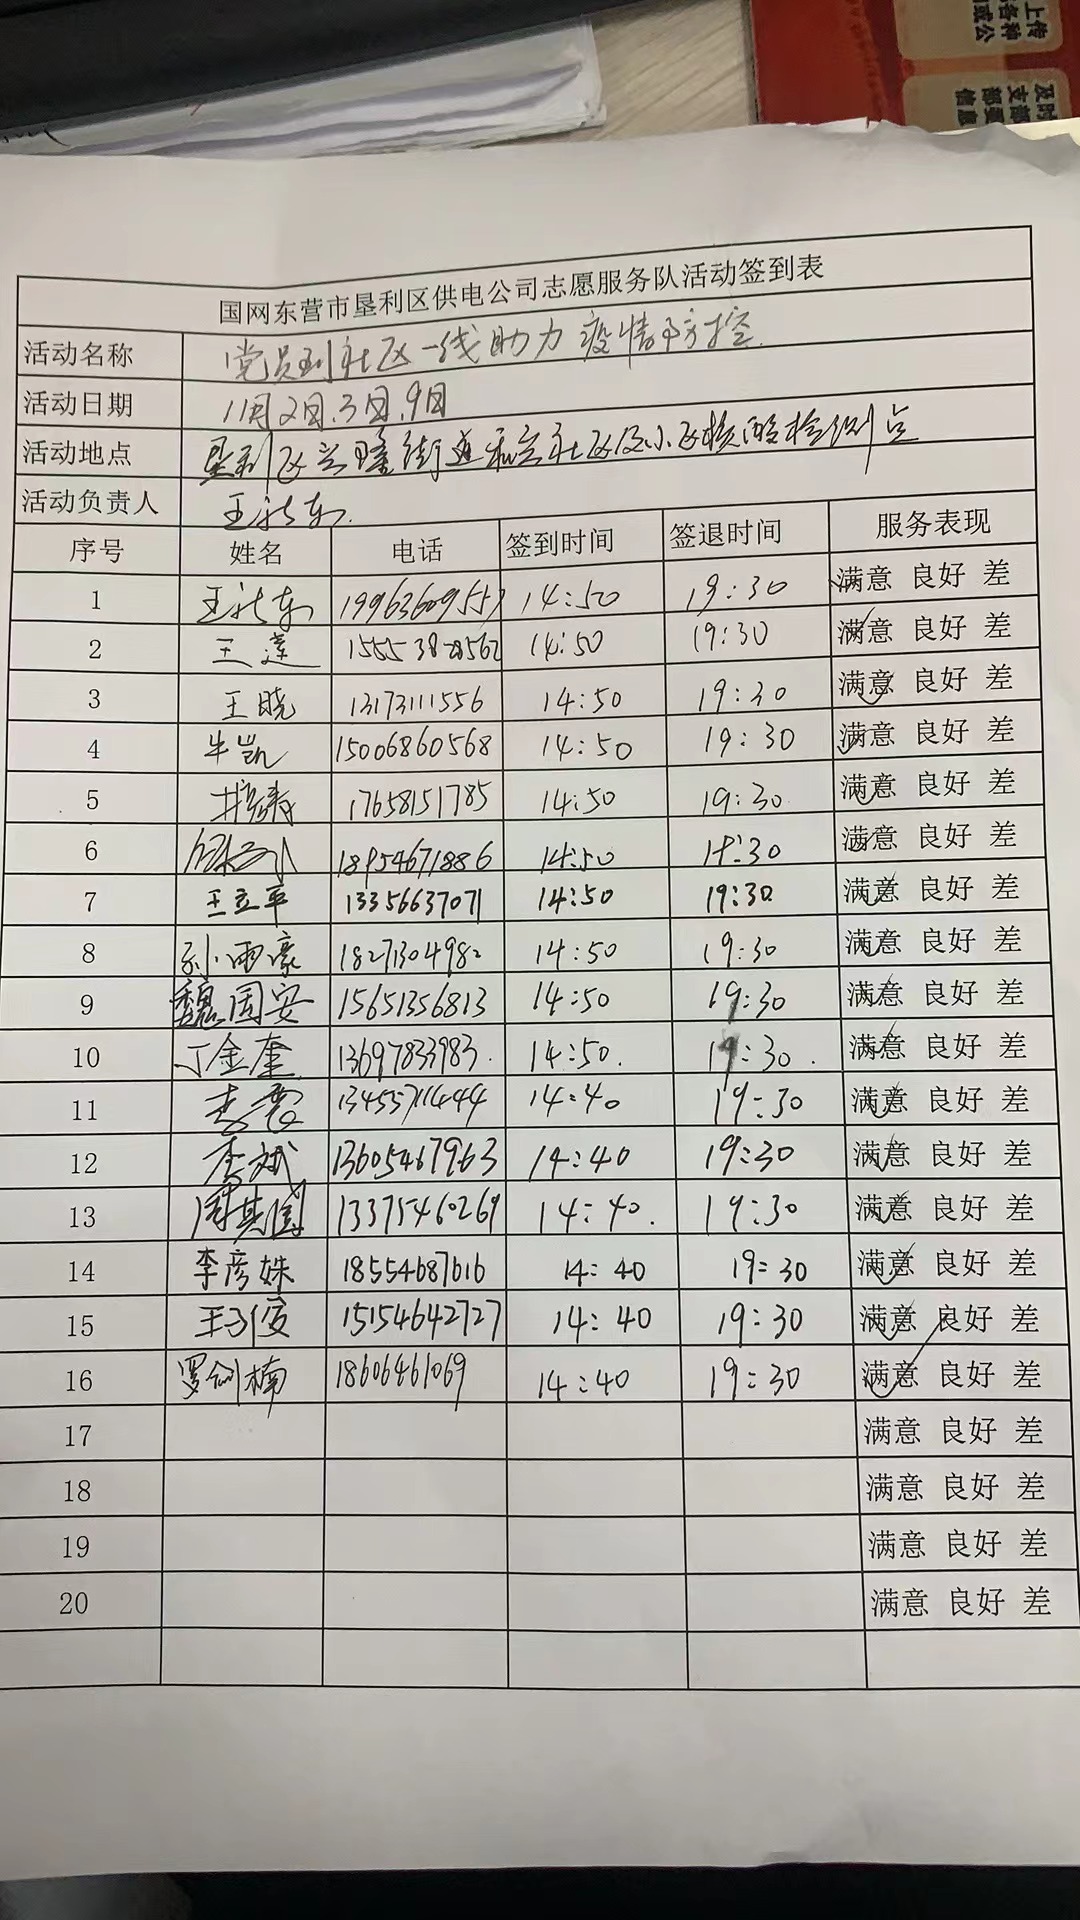 上传
各种
或公
及时
支部
部要
信息
国网东营市垦利区供电公司志愿服务队活动签到表
活动名称 党员到社区一线助力疫情防控
活动日期 11月2日、3日、9日
活动地点 垦利区兴隆街道和兴社区及小区核酸检测点
活动负责人 王
序号 姓名 电话 签到时间 签退时间 服务表现
1 王 14:50 19:30 满意 良好 差
2 王莲 14:50 19:30 满意 良好 差
3 王晓 13173111556 14:50 19:30 满意 良好 差
4 牛凯 15006860568 14:50 19:30 满意 良好 差
5 17658151785 14:50 19:30 满意 良好 差
6 18954671886 14:50 19:30 满意 良好 差
7 王立平 13356637071 14:50 19:30 满意 良好 差
8 孙雨豪 18271304982 14:50 19:30 满意 良好 差
9 魏国安 15651356813 14:50 19:30 满意 良好 差
10 丁金奎 13697833983 14:50 19:30 满意 良好 差
11 李 13455711444 14:40 19:30 满意 良好 差
12 李斌 13605467963 14:40 19:30 满意 良好 差
13 周其国 13375460269 14:40 19:30 满意 良好 差
14 李彦姝 18554687616 14:40 19:30 满意 良好 差
15 王子俊 15154642727 14:40 19:30 满意 良好 差
16 罗剑楠 18606461069 14:40 19:30 满意 良好 差
17 满意 良好 差
18 满意 良好 差
19 满意 良好 差
20 满意 良好 差